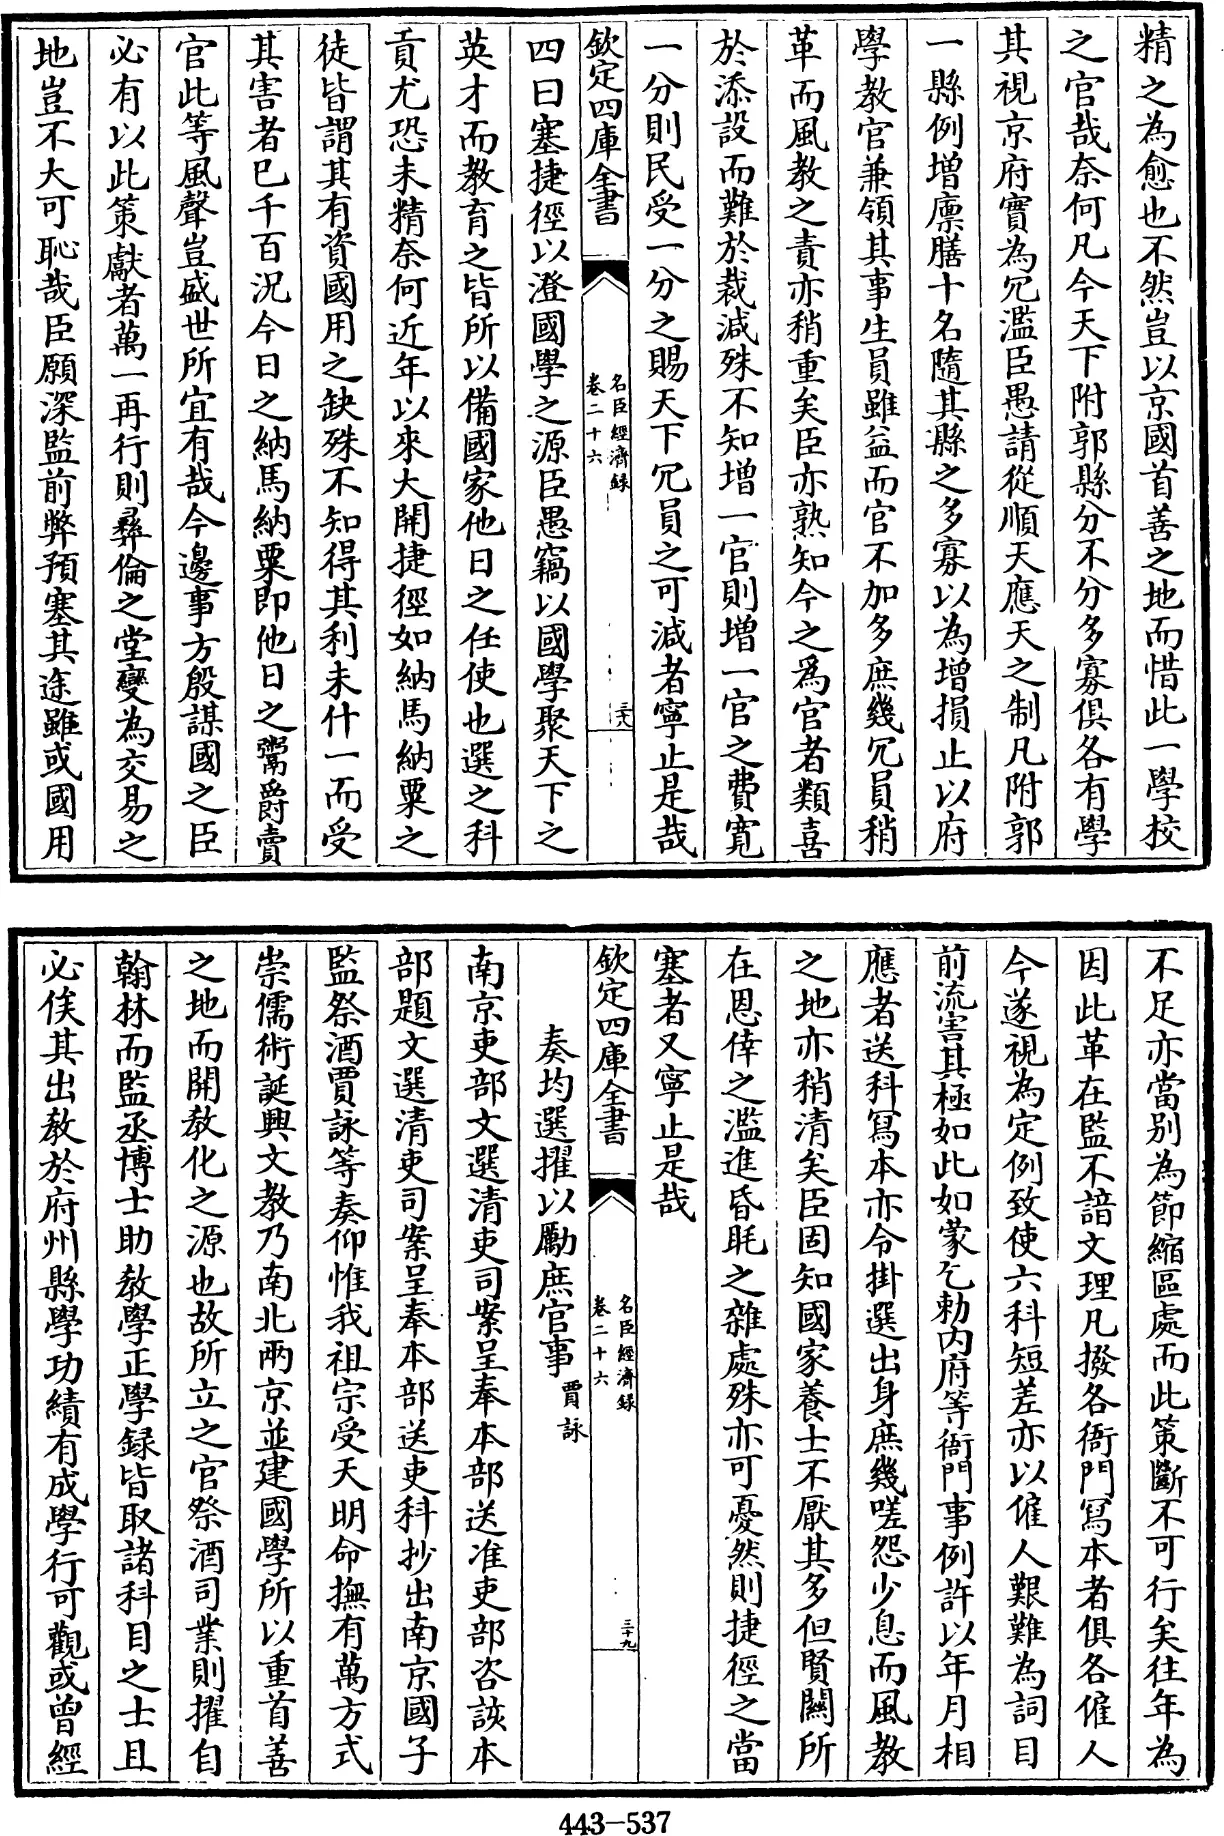 精之為愈也不然豈以京國首善之地而惜此一學校
之官哉奈何凡今天下附郭縣分不分多寡俱各有學
其視京府實為冗濫臣愚請從順天應天之制凡附郭
一縣例增廪膳十名隨其縣之多寡以為增損止以府
學教官兼領其事生員雖益而官不加多庶幾冗員稍
革而風教之責亦稍重矣臣亦熟知今之爲官者類喜
於添設而難於裁減殊不知增一官則増一官之費寛
一分則民受一分之賜天下冗員之可減者寧止是哉
欽定四庫全書
名臣經濟録
卷二十六
三十八
四曰塞捷徑以澄國學之源臣愚竊以國學聚天下之
英才而教育之皆所以備國家他日之任使也選之科
貢尤恐未精奈何近年以來大開捷徑如納馬納粟之
徒皆謂其有資國用之缺殊不知得其利未什一而受
其害者已千百況今日之納馬納粟即他日之鬻爵賣
官此等風聲豈盛世所宜有哉今邊事方殷謀國之臣
必有以此策獻者萬一再行則彞倫之堂變為交易之
地豈不大可恥哉臣願深監前弊預塞其途雖或國用
不足亦當别為節縮區處而此策斷不可行矣往年為
因此革在監不諳文理凡撥各衙門寫本者俱各僱人
今遂視為定例致使六科短差亦以僱人艱難為詞目
前流害其極如此如蒙乞勅内府等衙門事例許以年月相
應者送科寫本亦令掛選出身庶幾嗟怨少息而風教
之地亦稍清矣臣固知國家養士不厭其多但賢關所
在恩倖之濫進昏眊之雜處殊亦可憂然則捷徑之當
塞者又寧止是哉
欽定四庫全書
名臣經濟録
卷二十六
三十九
奏均選擢以勵庶官事 賈詠
南京吏部文選清吏司案呈奉本部送准吏部咨該本
部題文選清吏司案呈奉本部送吏科抄出南京國子
監祭酒賈詠等奏仰惟我祖宗受天明命撫有萬方式
崇儒術誕興文教乃南北兩京並建國學所以重首善
之地而開教化之源也故所立之官祭酒司業則擢自
翰林而監丞博士助教學正學録皆取諸科目之士且
必俟其出教於府州縣學功績有成學行可觀或曾經
443-537